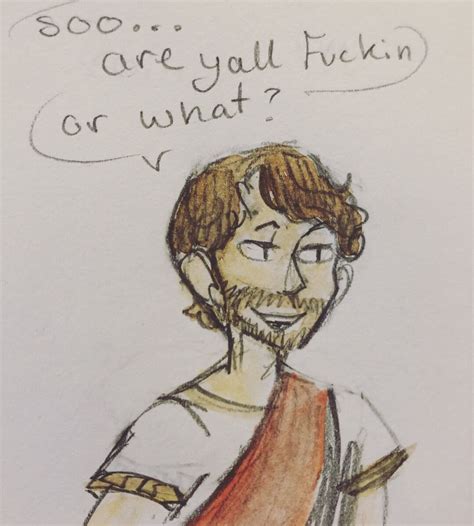 soo...
are yall Fuckin
or what?